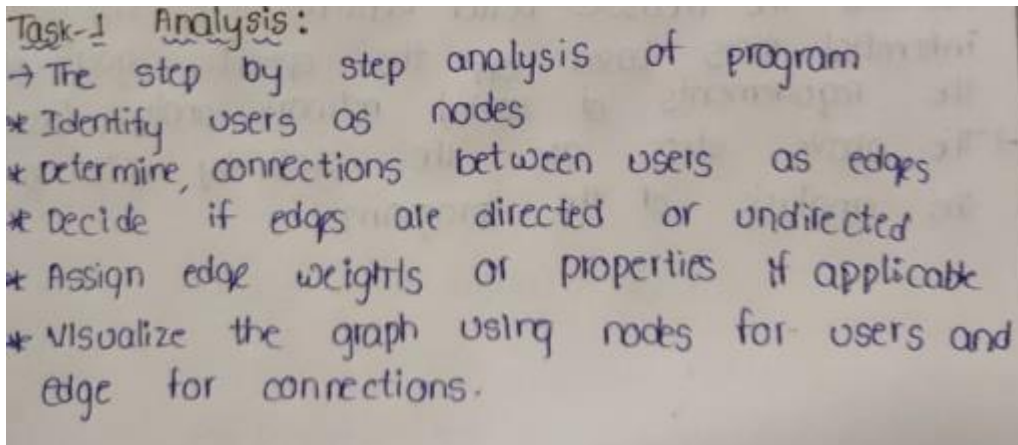 Task-1 Analysis:
→ The step by step analysis of program
* Identify users as nodes
* Determine, connections between users as edges
* Decide if edges are directed or undirected
* Assign edge weights or properties if applicable
* Visualize the graph using nodes for users and
edge for connections.